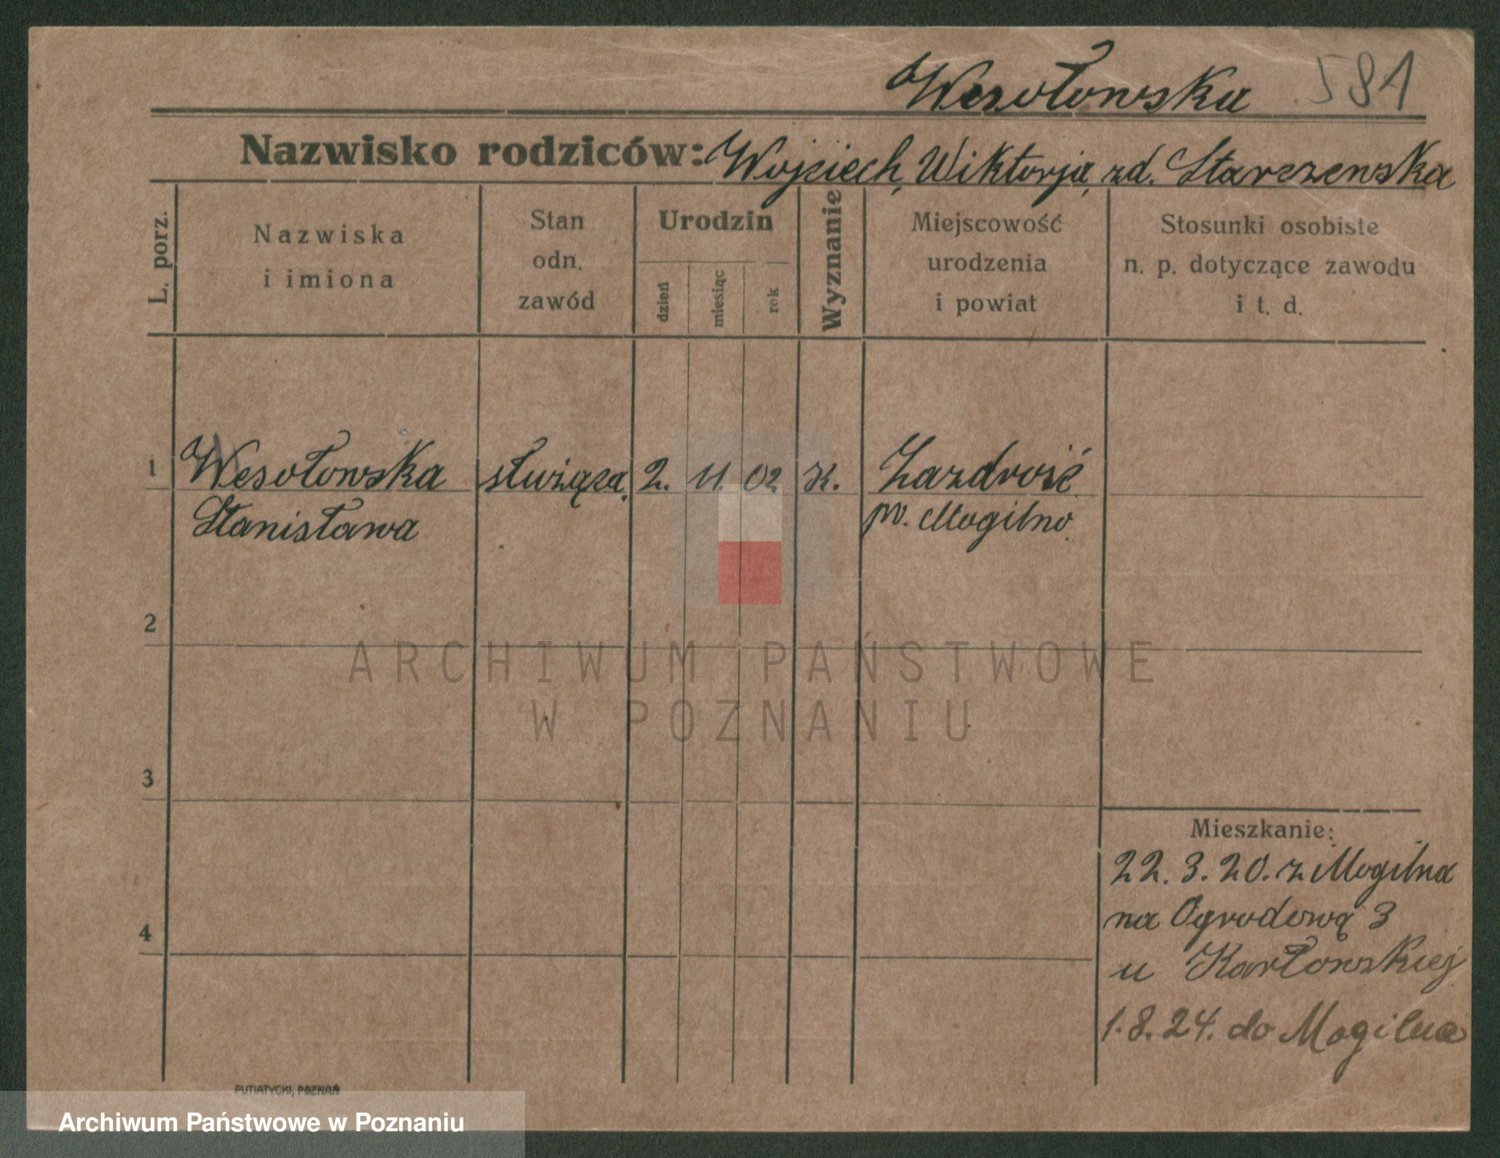 Wesołowska 581
Nazwisko rodziców: Wojciech, Wiktorja, zd. Starczewska
L. porz.
Nazwiska
i imiona
Stan
odn.
zawód
Urodzin
dzień
miesiąc
rok
Wyznanie
Miejscowość
urodzenia
i powiat
Stosunki osobiste
n. p. dotyczące zawodu
i t. d.
1 Wesołowska służąca, 2. 11. 02 K. Zazdrość
Stanisława pw. Mogilno
2
ARCHIWUM PAŃSTWOWE
W POZNANIU
3
Mieszkanie:
22. 3. 20. z Mogilna
4 na Ogrodową 3
u Karłowskiej
1. 8. 24. do Mogilna
PUTIATYCKI, POZNAŃ
Archiwum Państwowe w Poznaniu